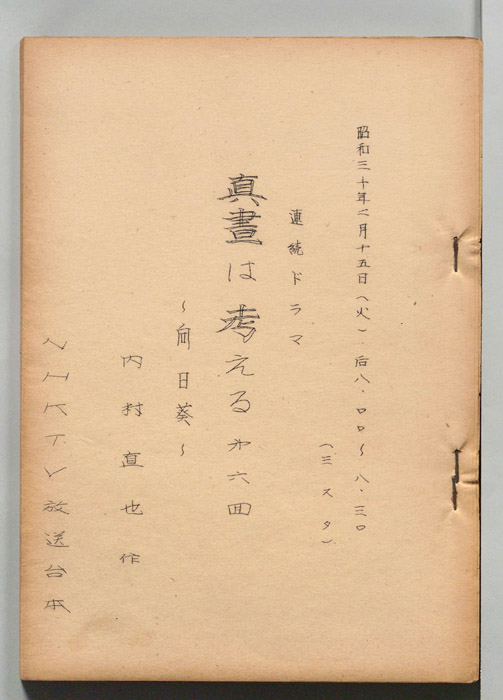 昭和三十年二月十五日（火）．后八．００〜八．三０
（三スタ）
連続ドラマ
真晝は考える㐧六回
〜向日葵〜
内村直也作
NHKTV放送台本